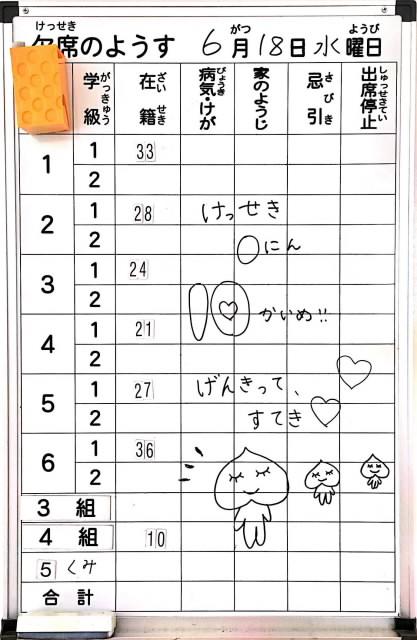 けっせき がつ ようび
欠席のようす 6月18日水曜日
がっきゅう ざいせき びょうき しゅっせきていし
学級 在籍 病気・けが 家のようじ 忌引 きびき 出席停止
1 1 33
2
2 1 28 けっせき
2 0にん
3 1 24
2 10かいめ!!
4 1 21
2
5 1 27 げんきって、
2 すてき
6 1 36
2
3 組
4 組 10
5 くみ
合計